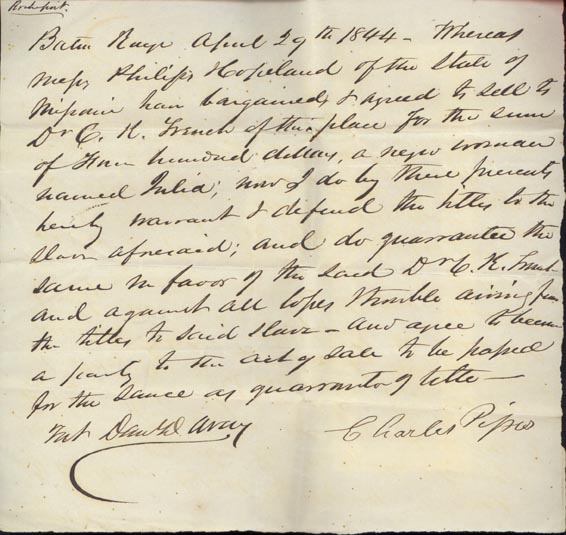 Baton Rouge April 29th 1844 - Whereas
Messrs Philips & Copeland of the State of
Missouri have bargained & agreed to sell to
Dr C. H. French of this place for the sum
of Four hundred dollars, a negro woman
named Julia; now I do by these presents
hereby warrant & defend the titles to the
slave aforesaid; and do guarantee the
same in favor of the said Dr C. H. French
and against all losses & trouble arising from
the titles to said slave - and agree to become
a party to the act of sale to be passed
for the same as guarantor of title -
David D Avery
Charles